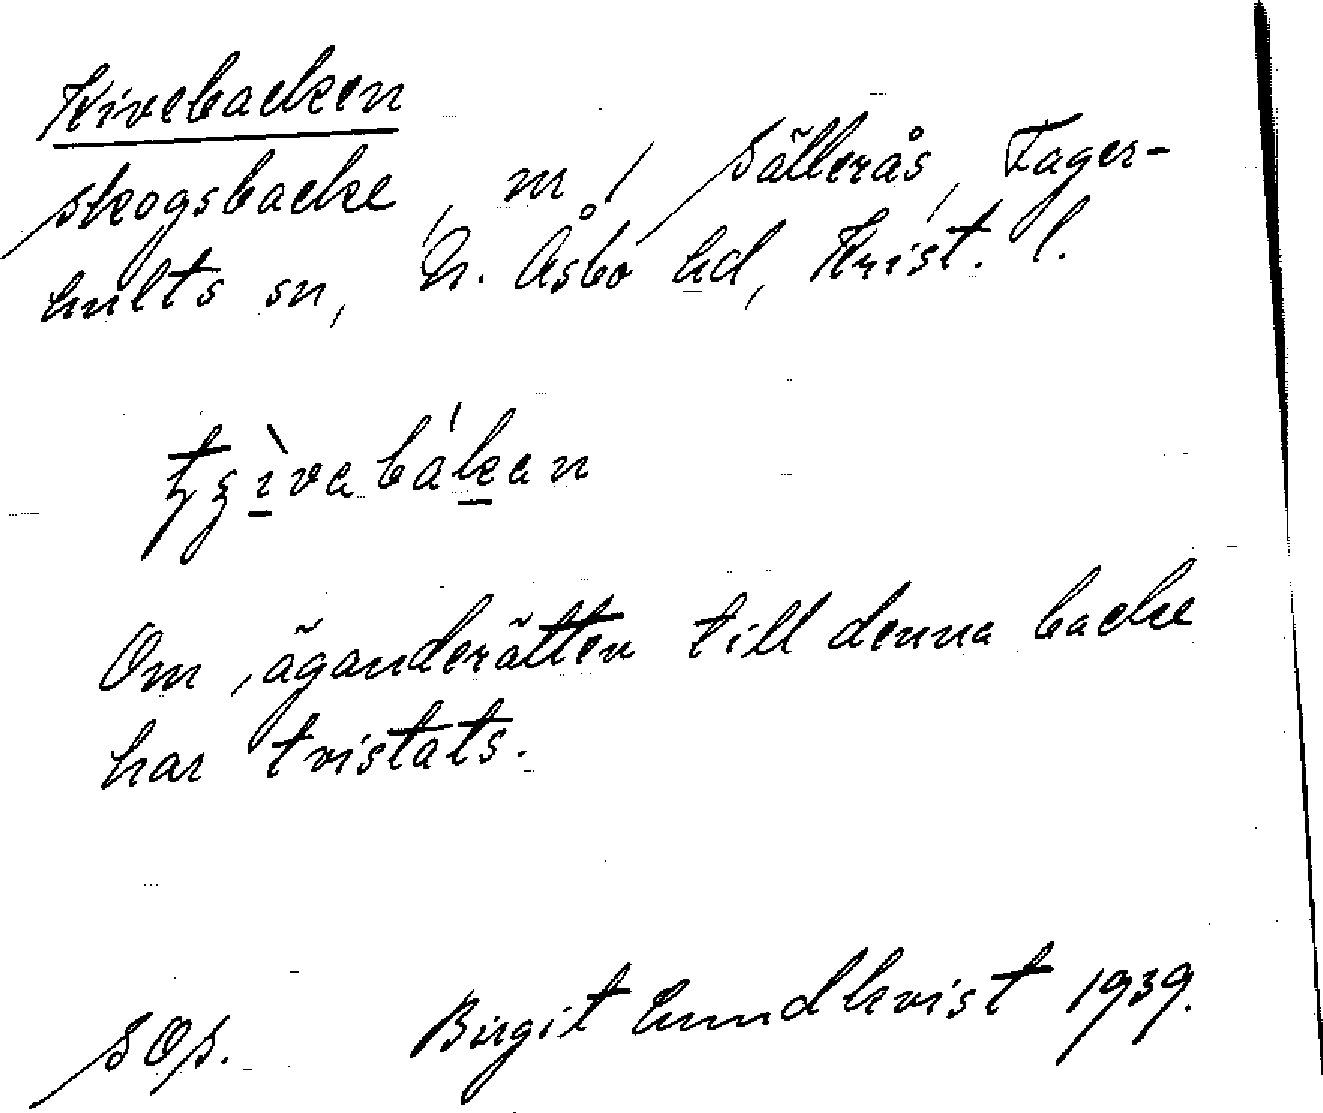 Kivebacken
skogsbacke, m, Sällerås, Fager-
hults sn, N. Åsbo hd, Krist. l.
Om äganderätten till denna backe
har tvistats.
s Os. Birgit Lundkvist 1939.